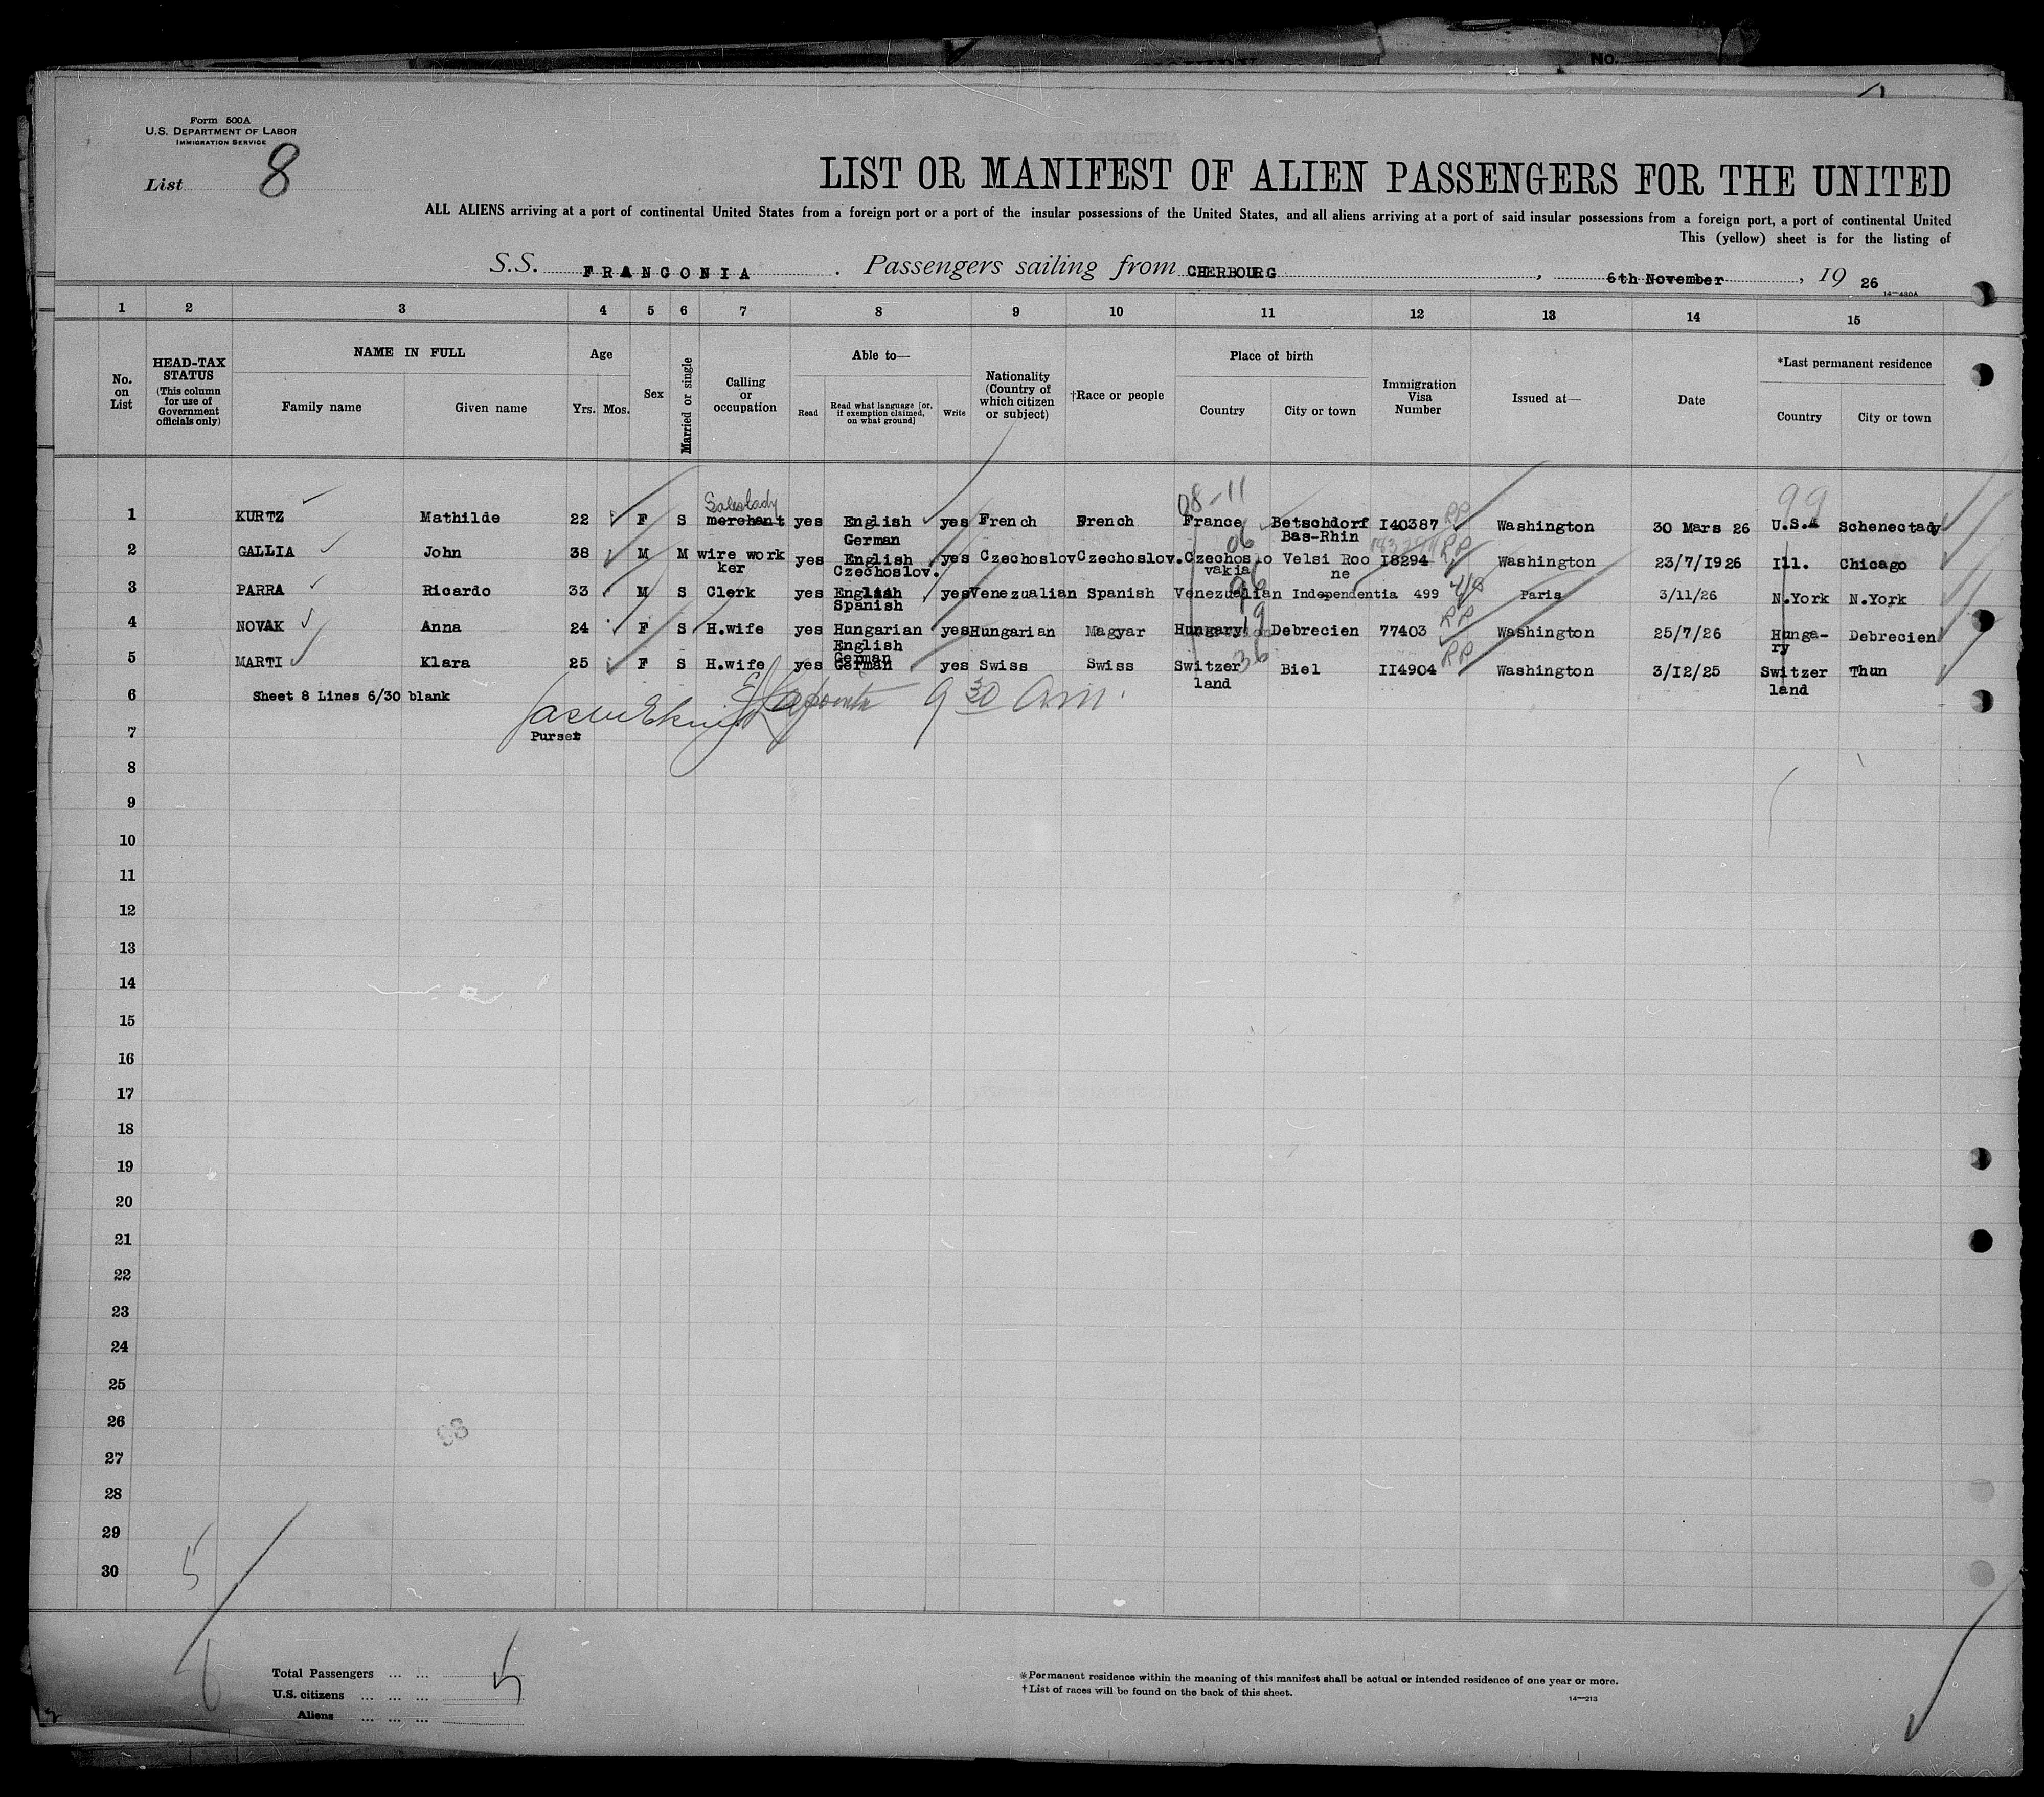 NO.
Form 500A
U.S. DEPARTMENT OF LABOR
IMMIGRATION SERVICE
List 8
LIST OR MANIFEST OF ALIEN PASSENGERS FOR THE UNITED
ALL ALIENS arriving at a port of continental United States from a foreign port or a port of the insular possessions of the United States, and all aliens arriving at a port of said insular possessions from a foreign port, a port of continental United
This (yellow) sheet is for the listing of
S.S. FRANCONIA. Passengers sailing from CHERBOURG, 6th November, 19 26
14—430A
1 2 3 4 5 6 7 8 9 10 11 12 13 14 15
No. on List
HEAD-TAX STATUS (This column for use of Government officials only)
NAME IN FULL
Family name Given name
Age
Yrs. Mos.
Sex
Married or single
Calling or occupation
Able to—
Read Read what language [or, if exemption claimed, on what ground] Write
Nationality (Country of which citizen or subject)
†Race or people
Place of birth
Country City or town
Immigration Visa Number
Issued at—
Date
*Last permanent residence
Country City or town
Saleslady 08-11 99
1 KURTZ Mathilde 22 F S merchant yes English German yes French French France Betschdorf Bas-Rhin I40387 RP Washington 30 Mars 26 U.S.A Schenectady
06
2 GALLIA John 38 M M wire work ker yes English Czechoslov. yes Czechoslov Czechoslov. Czechoslo vakia Velsi Roo ne I8294 RP Washington 23/7/1926 Ill. Chicago
3 PARRA Ricardo 33 M S Clerk yes English Spanish yes Venezualian Spanish Venezualian Independentia 499 Paris 3/11/26 N.York N.York
19
4 NOVAK Anna 24 F S H.wife yes Hungarian English yes Hungarian Magyar Hungary Debrecien 77403 RP Washington 25/7/26 Hunga- ry Debrecien
36
5 MARTI Klara 25 F S H.wife yes German yes Swiss Swiss Switzer land Biel II4904 RP Washington 3/I2/25 Switzer land Thun
6 Sheet 8 Lines 6/30 blank 9 30 am.
7 Purser
8
9
10
11
12
13
14
15
16
17
18
19
20
21
22
23
24
25
26
27
28
29
30
5
Total Passengers ... ... 5
U.S. citizens ... ... ...
Aliens ... ... ...
*Permanent residence within the meaning of this manifest shall be actual or intended residence of one year or more.
†List of races will be found on the back of this sheet.
14—213